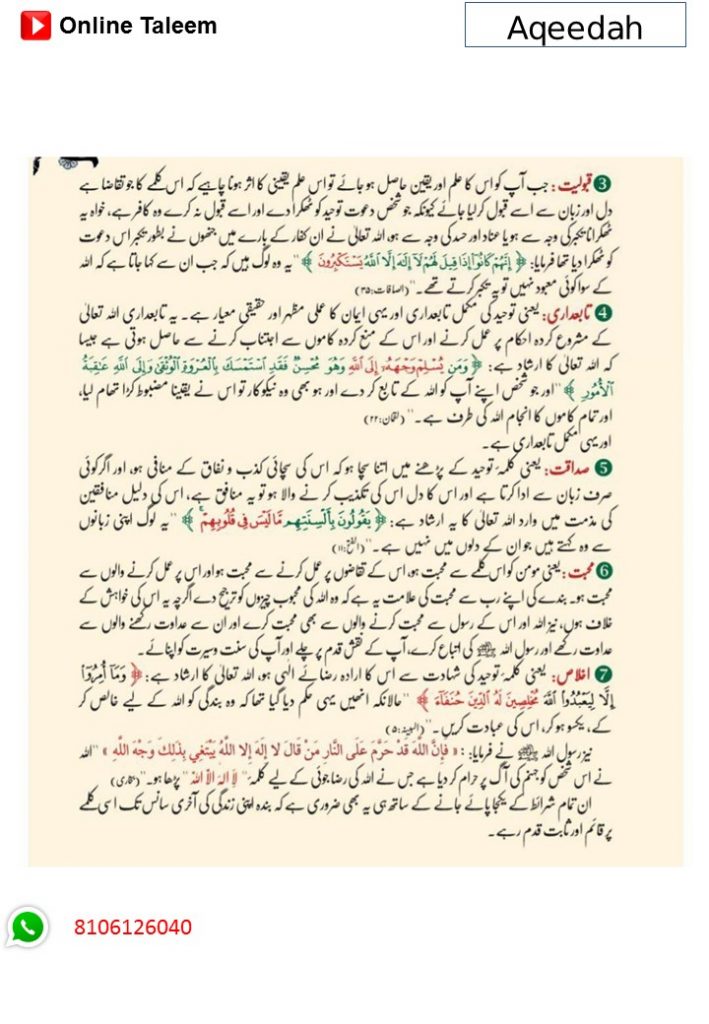 Online Taleem
Aqeedah
❸ قبولیت: جب آپ کو اس کا علم اور یقین حاصل ہو جائے تو اس علم یقینی کا اثر ہونا چاہیے کہ اس کلمے کا جو تقاضا ہے
دل اور زبان سے اسے قبول کر لیا جائے کیونکہ جو شخص دعوت توحید کو ٹھکرا دے اور اسے قبول نہ کرے وہ کافر ہے، خواہ یہ
ٹھکرانا تکبر کی وجہ سے ہو یا عناد اور حسد کی وجہ سے ہو، اللہ تعالیٰ نے ان کفار کے بارے میں جنھوں نے بطور تکبر اس دعوت
کو ٹھکرا دیا تھا فرمایا: ﴿ إِنَّهُمْ كَانُوٓا۟ إِذَا قِيلَ لَهُمْ لَآ إِلَٰهَ إِلَّا ٱللَّهُ يَسْتَكْبِرُونَ ﴾ "یہ وہ لوگ ہیں کہ جب ان سے کہا جاتا ہے کہ اللہ
کے سوا کوئی معبود نہیں تو یہ تکبر کرتے تھے۔" (الصافات:۳۵)
❹ تابعداری: یعنی توحید کی مکمل تابعداری اور یہی ایمان کا عملی مظہر اور حقیقی معیار ہے۔ یہ تابعداری اللہ تعالیٰ
کے مشروع کردہ احکام پر عمل کرنے اور اس کے منع کردہ کاموں سے اجتناب کرنے سے حاصل ہوتی ہے جیسا
کہ اللہ تعالیٰ کا ارشاد ہے: ﴿ وَمَن يُسْلِمْ وَجْهَهُۥٓ إِلَى ٱللَّهِ وَهُوَ مُحْسِنٌ فَقَدِ ٱسْتَمْسَكَ بِٱلْعُرْوَةِ ٱلْوُثْقَىٰ وَإِلَى ٱللَّهِ عَٰقِبَةُ
ٱلْأُمُورِ ﴾ "اور جو شخص اپنے آپ کو اللہ کے تابع کر دے اور ہو بھی وہ نیکوکار تو اس نے یقینا مضبوط کڑا تھام لیا،
اور تمام کاموں کا انجام اللہ کی طرف ہے۔" (لقمان:۲۲)
اور یہی مکمل تابعداری ہے۔
❺ صداقت: یعنی کلمۂ توحید کے پڑھنے میں اتنا سچا ہو کہ اس کی سچائی کذب و نفاق کے منافی ہو، اور اگر کوئی
صرف زبان سے ادا کرتا ہے اور اس کا دل اس کی تکذیب کرنے والا ہو تو یہ منافق ہے، اس کی دلیل منافقین
کی مذمت میں وارد اللہ تعالیٰ کا یہ ارشاد ہے: ﴿ يَقُولُونَ بِأَلْسِنَتِهِم مَّا لَيْسَ فِى قُلُوبِهِمْ ۚ ﴾ "یہ لوگ اپنی زبانوں
سے وہ کہتے ہیں جو ان کے دلوں میں نہیں ہے۔" (الفتح:۱۱)
❻ محبت: یعنی مومن کو اس کلمے سے محبت ہو، اس کے تقاضوں پر عمل کرنے سے محبت ہو اور اس پر عمل کرنے والوں سے
محبت ہو۔ بندے کی اپنے رب سے محبت کی علامت یہ ہے کہ وہ اللہ کی محبوب چیزوں کو ترجیح دے اگرچہ یہ اس کی خواہش کے
خلاف ہوں، نیز اللہ اور اس کے رسول سے محبت کرنے والوں سے بھی محبت کرے اور ان سے عداوت رکھنے والوں سے
عداوت رکھے اور رسول اللہ ﷺ کی اتباع کرے، آپ کے نقش قدم پر چلے اور آپ کی سنت وسیرت کو اپنائے۔
❼ اخلاص: یعنی کلمۂ توحید کی شہادت سے اس کا ارادہ رضائے الٰہی ہو، اللہ تعالیٰ کا ارشاد ہے: ﴿ وَمَآ أُمِرُوٓا۟
إِلَّا لِيَعْبُدُوا۟ ٱللَّهَ مُخْلِصِينَ لَهُ ٱلدِّينَ حُنَفَآءَ ﴾ "حالانکہ انھیں یہی حکم دیا گیا تھا کہ وہ بندگی کو اللہ کے لیے خالص کر
کے، یکسو ہو کر، اس کی عبادت کریں۔" (البینۃ:۵)
نیز رسول اللہ ﷺ نے فرمایا: « فَإِنَّ اللَّهَ قَدْ حَرَّمَ عَلَى النَّارِ مَنْ قَالَ لَا إِلَهَ إِلَّا اللَّهُ يَبْتَغِي بِذَلِكَ وَجْهَ اللَّهِ » "اللہ
نے اس شخص کو جہنم کی آگ پر حرام کر دیا ہے جس نے اللہ کی رضا جوئی کے لیے کلمہ "لا الہ الا اللہ" پڑھا ہو۔" (بخاری)
ان تمام شرائط کے یکجا پائے جانے کے ساتھ ہی یہ بھی ضروری ہے کہ بندہ اپنی زندگی کی آخری سانس تک اسی کلمے
پر قائم اور ثابت قدم رہے۔
8106126040